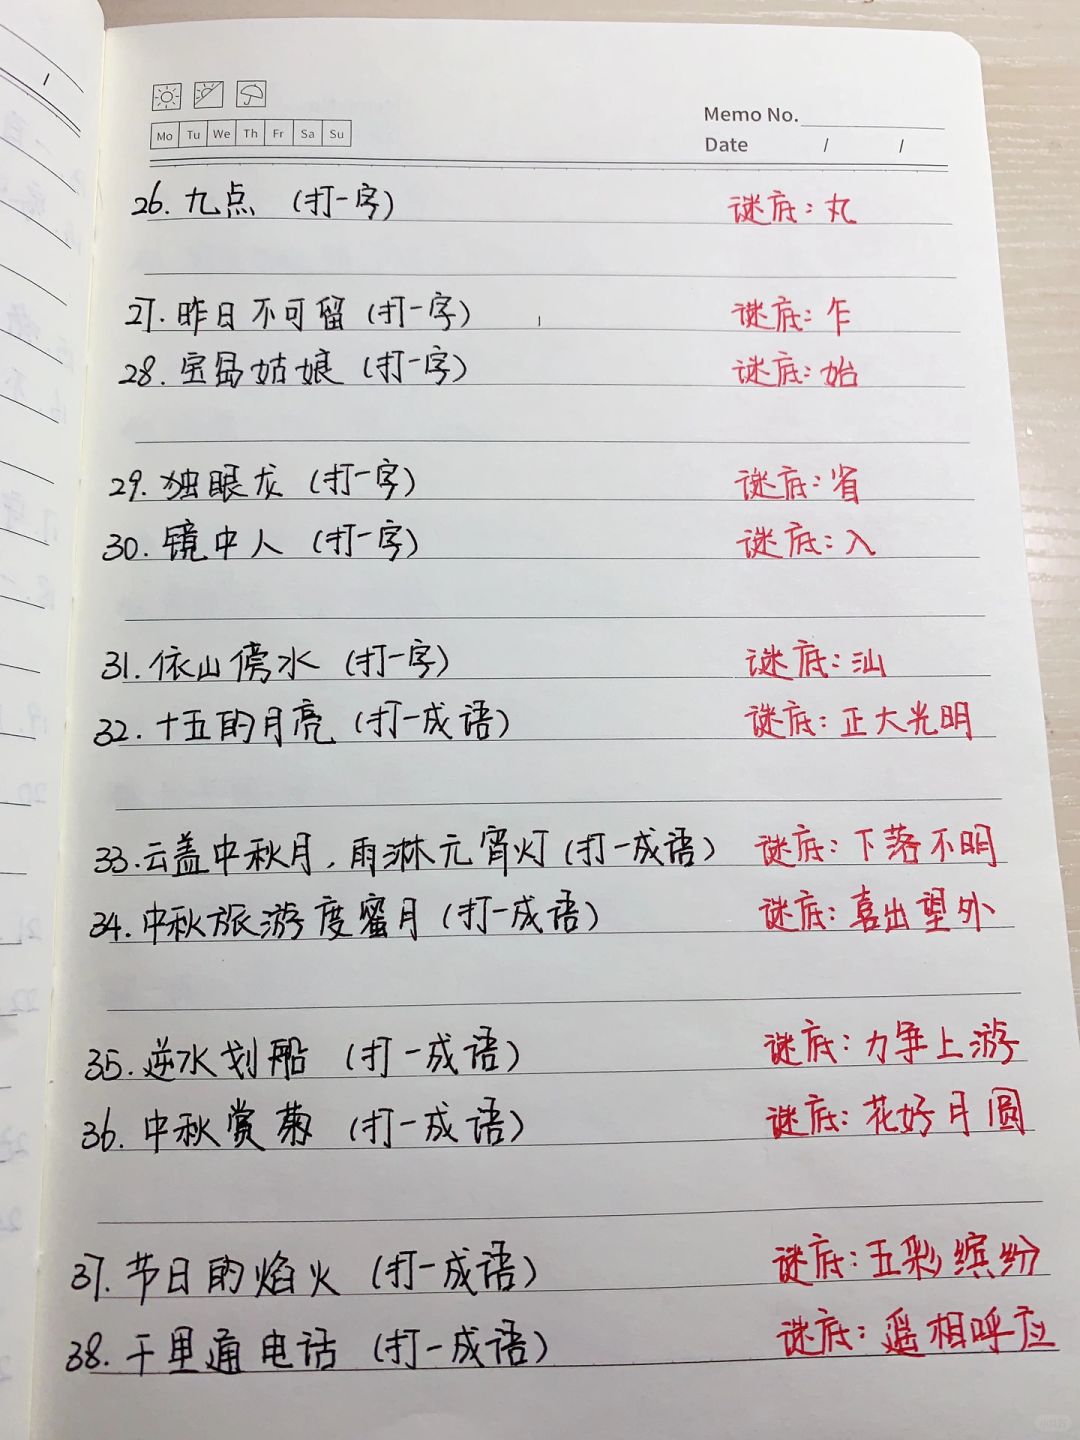 Mo Tu We Th Fr Sa Su
Memo No.
Date / /
26. 九点 (打一字) 谜底: 丸
27. 昨日不可留 (打一字) 谜底: 乍
28. 宝岛姑娘 (打一字) 谜底: 始
29. 独眼龙 (打一字) 谜底: 省
30. 镜中人 (打一字) 谜底: 入
31. 依山傍水 (打一字) 谜底: 汕
32. 十五的月亮 (打一成语) 谜底: 正大光明
33. 云盖中秋月, 雨淋元宵灯 (打一成语) 谜底: 下落不明
34. 中秋旅游度蜜月 (打一成语) 谜底: 喜出望外
35. 逆水划船 (打一成语) 谜底: 力争上游
36. 中秋赏菊 (打一成语) 谜底: 花好月圆
37. 节日的焰火 (打一成语) 谜底: 五彩缤纷
38. 千里通电话 (打一成语) 谜底: 遥相呼应